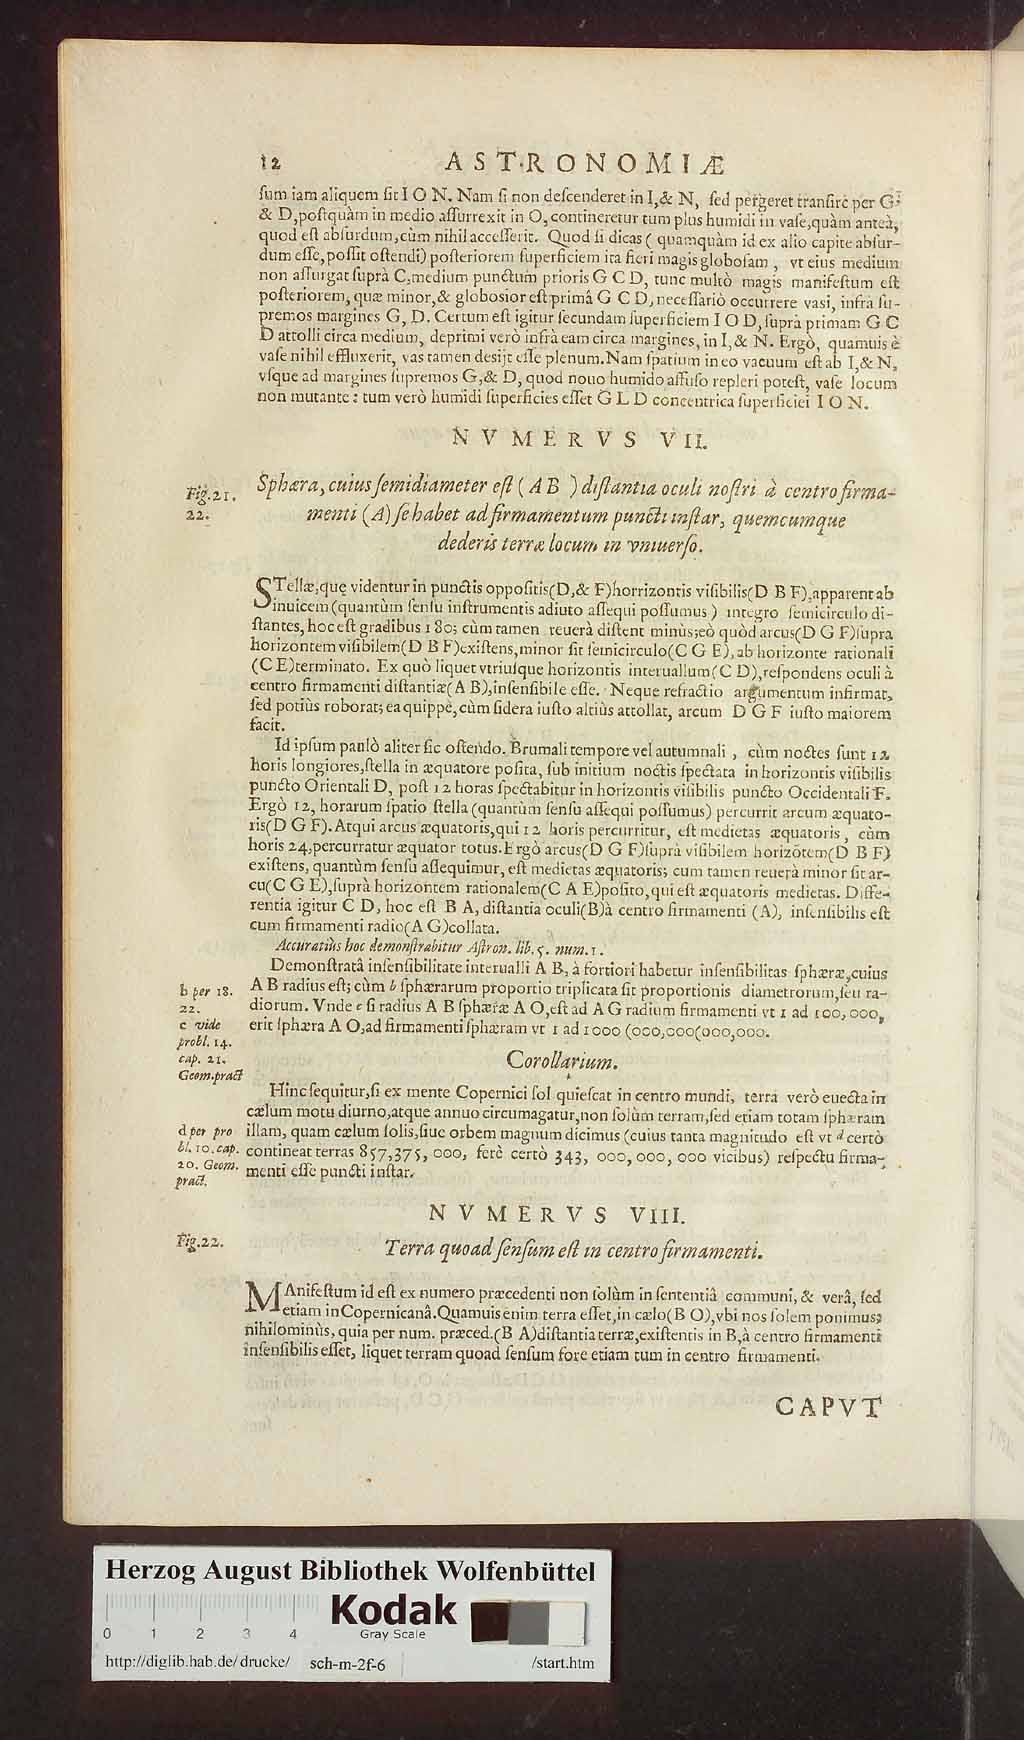 12 ASTRONOMIÆ
ſum iam aliquem ſit I O N. Nam ſi non deſcenderet in I,& N, ſed pergeret tranſire per G,
& D,poſtquàm in medio aſſurrexit in O, contineretur tum plus humidi in vaſe,quàm anteà,
quod eſt abſurdum,cùm nihil acceſſerit. Quod ſi dicas ( quamquàm id ex alio capite abſur-
dum eſſe,poſſit oſtendi) poſteriorem ſuperficiem ita fieri magis globoſam , vt eius medium
non aſſurgat ſuprà C,medium punctum prioris G C D, tunc multò magis manifeſtum eſt
poſteriorem, quæ minor,& globosior eſt primâ G C D, neceſſariò occurrere vasi, infrà ſu-
premos margines G, D. Certum eſt igitur ſecundam ſuperficiem I O D, ſuprà primam G C
D attolli circa medium, deprimi verò infrà eam circa margines, in I,& N. Ergò, quamuis è
vaſe nihil effluxerit, vas tamen desijt eſſe plenum. Nam ſpatium in eo vacuum eſt ab I,& N,
vſque ad margines ſupremos G,& D, quod nouo humido affuſo repleri poteſt, vaſe locum
non mutante : tum verò humidi ſuperficies eſſet G L D concentrica ſuperficiei I O N.
NVMERVS VII.
Fig.21.
22.
Sphæra, cuius ſemidiameter eſt ( A B ) diſtantia oculi noſtri à centro firma-
menti (A) ſe habet ad firmamentum puncti inſtar, quemcumque
dederis terræ locum in vniuerſo.
STellæ,quę videntur in punctis oppoſitis(D,& F)horrizontis viſibilis(D B F),apparent ab
inuicem (quantùm ſenſu inſtrumentis adiuto aſſequi poſſumus ) integro ſemicirculo di-
ſtantes, hoc eſt gradibus 180; cùm tamen reuerà diſtent minùs;eò quòd arcus(D G F)ſupra
horizontem viſibilem(D B F)exiſtens,minor ſit ſemicirculo(C G E),ab horizonte rationali
(C E)terminato. Ex quò liquet vtriuſque horizontis interuallum(C D),reſpondens oculi à
centro firmamenti diſtantiæ(A B),inſenſibile eſſe. Neque refractio argumentum infirmat,
ſed potiùs roborat; ea quippè,cùm ſidera iuſto altiùs attollat, arcum D G F iuſto maiorem
facit.
Id ipſum paulò aliter ſic oſtendo. Brumali tempore vel autumnali , cùm noctes ſunt 12
horis longiores,ſtella in æquatore poſita, ſub initium noctis ſpectata in horizontis viſibilis
puncto Orientali D, poſt 12 horas ſpectabitur in horizontis viſibilis puncto Occidentali F.
Ergò 12, horarum ſpatio ſtella (quantùm ſenſu aſſequi poſſumus) percurrit arcum æquato-
ris(D G F). Atqui arcus æquatoris,qui 12 horis percurritur, eſt medietas æquatoris, cùm
horis 24,percurratur æquator totus. Ergò arcus(D G F)ſuprà viſibilem horizõtem(D B F)
exiſtens, quantùm ſenſu aſſequimur, eſt medietas æquatoris; cum tamen reuerà minor ſit ar-
cu(C G E),ſuprà horizontem rationalem(C A E)poſito,qui eſt æquatoris medietas. Diffe-
rentia igitur C D, hoc eſt B A, diſtantia oculi(B)à centro firmamenti (A), inſenſibilis eſt
cum firmamenti radio(A G)collata.
Accuratiùs hoc demonſtrabitur Aſtron. lib. 5. num. 1.
Demonſtratâ inſenſibilitate interualli A B, à fortiori habetur inſenſibilitas ſphæræ,cuius
A B radius eſt; cùm b ſphærarum proportio triplicata ſit proportionis diametrorum,ſeu ra-
diorum. Vnde c ſi radius A B ſphæræ A O,eſt ad A G radium firmamenti vt 1 ad 100,000,
erit ſphæra A O,ad firmamenti ſphæram vt 1 ad 1000 (000,000(000,000.
b per 18.
22.
c vide
probl. 14.
cap. 21.
Geom.pract
Corollarium.
Hinc ſequitur,ſi ex mente Copernici ſol quieſcat in centro mundi, terra verò euecta in
cælum motu diurno,atque annuo circumagatur,non ſolùm terram,ſed etiam totam ſphæram
illam, quam cælum ſolis,ſiue orbem magnum dicimus (cuius tanta magnitudo eſt vt d certò
contineat terras 857,375, 000, ferè certò 343, 000, 000, 000 vicibus) reſpectu firma-
menti eſſe puncti inſtar.
d per pro
bl. 10. cap.
20. Geom.
pract.
NVMERVS VIII.
Fig.22.
Terra quoad ſenſum eſt in centro firmamenti.
MAnifeſtum id eſt ex numero præcedenti non ſolùm in ſententiâ communi, & verâ, ſed
etiam in Copernicanâ. Quamuis enim terra eſſet,in cælo(B O),vbi nos ſolem ponimus;
nihilominùs, quia per num. præced.(B A)diſtantia terræ,exiſtentis in B,à centro firmamenti
inſenſibilis eſſet, liquet terram quoad ſenſum fore etiam tum in centro firmamenti.
CAPVT
Herzog August Bibliothek Wolfenbüttel
Kodak
Gray Scale
0 1 2 3 4
http://diglib.hab.de/drucke/ sch-m-2f-6 /start.htm